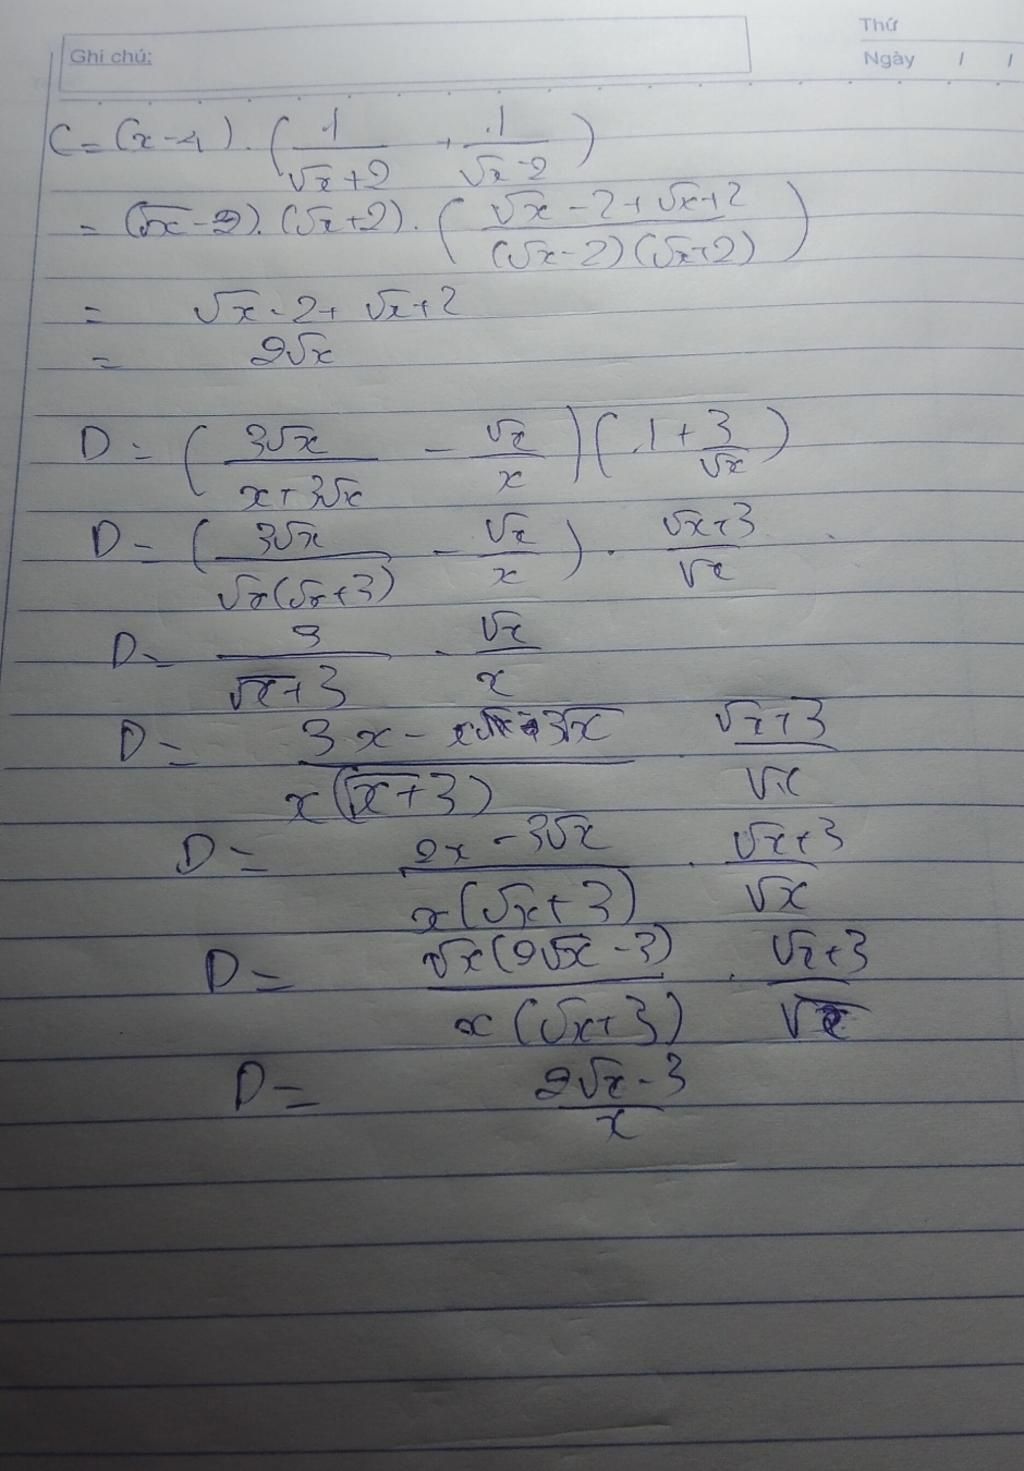 Thứ
Ghi chú:
Ngày / /
C = (x-4) . ( 1/(√x+2) + 1/(√x-2) )
= (√x-2).(√x+2).( (√x-2+√x+2)/((√x-2)(√x+2)) )
= √x-2+√x+2
= 2√x
D = ( 3√x/(x+3√x) - √x/x )( 1+3/√x )
D = ( 3√x/(√x(√x+3)) - √x/x ) . (√x+3)/√x
D = 3/(√x+3) - √x/x
D = (3x - 3√x)/(x(√x+3)) . (√x+3)/√x
D = (2x-3√x)/(x(√x+3)) . (√x+3)/√x
D = √x(2√x-3)/(x(√x+3)) . (√x+3)/√x
D = (2√x-3)/x